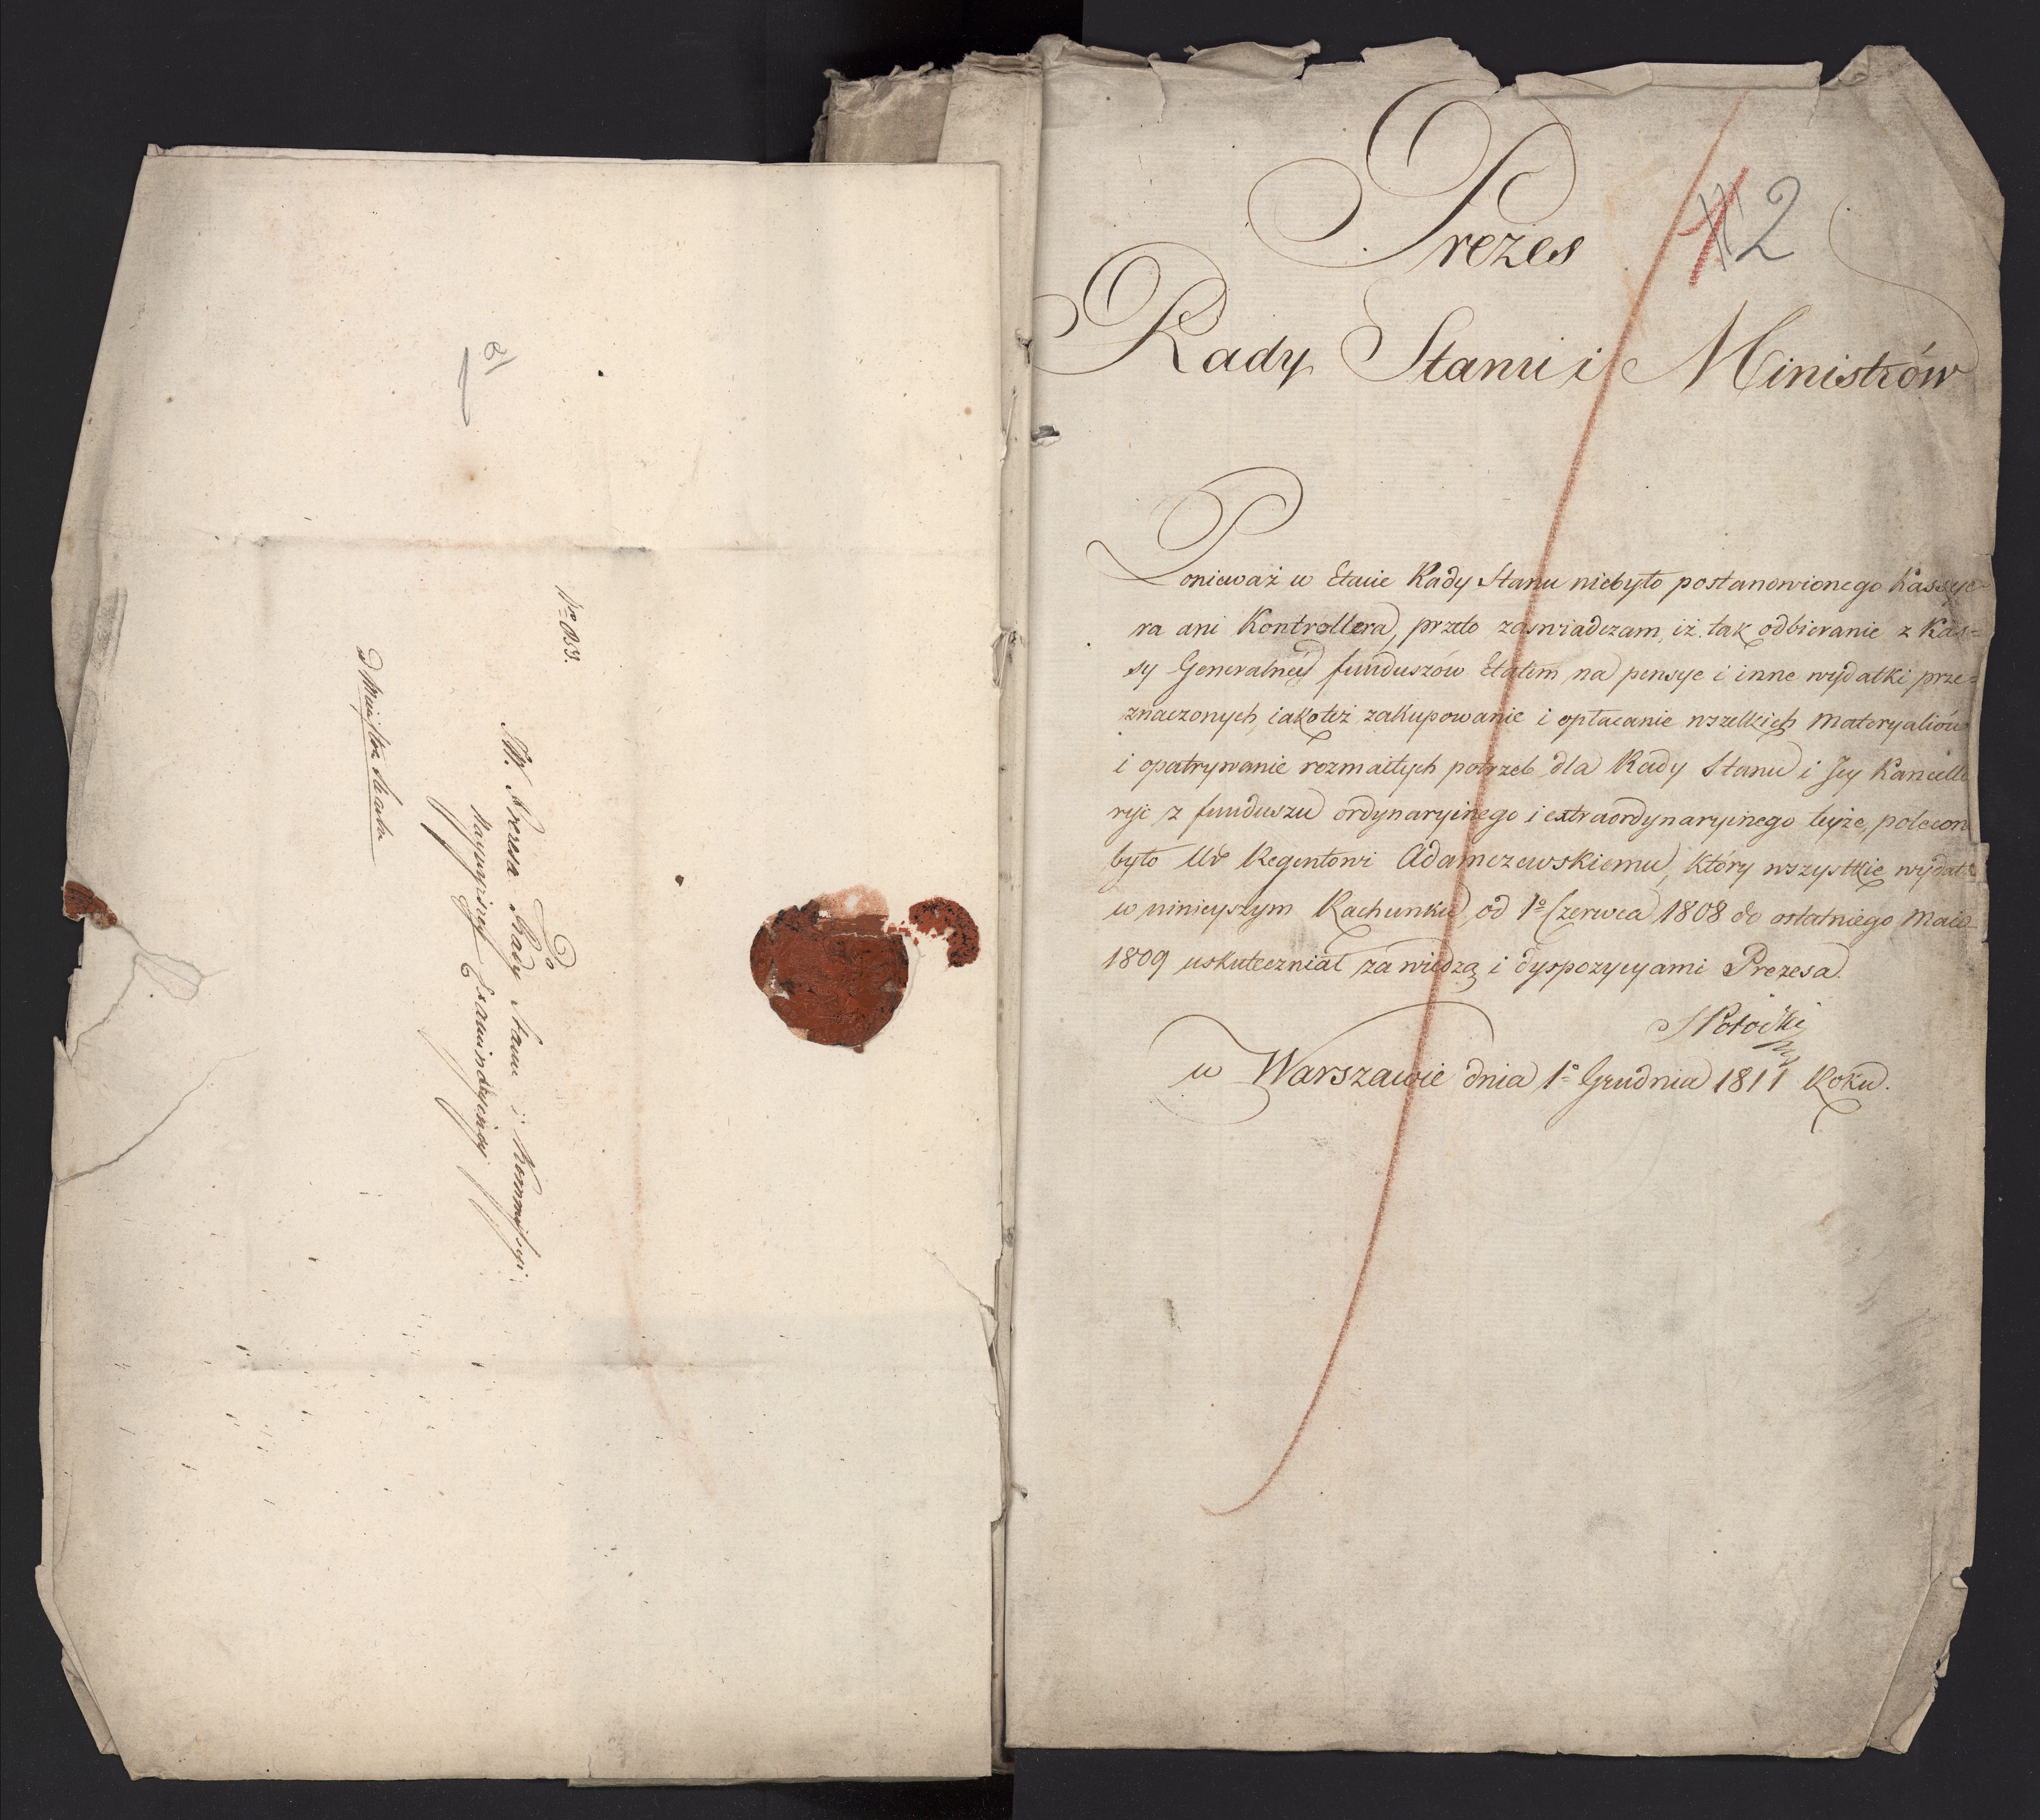 No 633.
Do
JW. Prezesa Rady Stanu i Kommissyi
Naywyższey Examinacyiney
d Minister Skarbu
12
Prezes
Rady Stanu i Ministrów
Ponieważ w Etacie Rady Stanu niebyło postanowionego Kassye-
ra ani Kontrollera, przeto zaswiadczam, iż tak odbieranie z Kas=
sy Generalney funduszów Etatem na pensye i inne wydatki prze=
znaczonych, iakoteż zakupowanie i opłacanie wszelkich Materyałów
i opatrywanie rozmaitych potrzeb dla Rady Stanu i Jey Kancella
ryi z funduszu ordynaryinego i extraordynaryinego teyże, polecon
było Ur Regentowi Adamczewskiemu, który wszystkie wydat
w ninieyszym Rachunku od 1o Czerwca 1808 do ostatniego Maia
1809 uskuteczniał za wiedzą i dyspozycyami Prezesa.
SPotocki
w Warszawie dnia 1o Grudnia 1811 Roku.